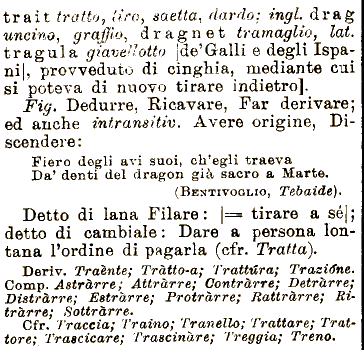 trait tratto, tiro, saetta, dardo; ingl. drag
uncino, graffio, dragnet tramaglio, lat.
tragula giavellotto |de'Galli e degli Ispa-
ni|, provveduto di cinghia, mediante cui
si poteva di nuovo tirare indietro].
Fig. Dedurre, Ricavare, Far derivare;
ed anche intransitiv. Avere origine, Di-
scendere:
Fiero degli avi suoi, ch'egli traeva
Da' denti del dragon già sacro a Marte.
(BENTIVOGLIO, Tebaide).
Detto di lana Filare: |= tirare a sé|;
detto di cambiale: Dare a persona lon-
tana l'ordine di pagarla (cfr. Tratta).
Deriv. Traènte; Tràtto-a; Trattúra; Trazióne.
Comp. Astràrre; Attràrre; Contràrre; Detràrre;
Distràrre; Estràrre; Protràrre; Rattràrre; Ri-
tràrre; Sottràrre.
Cfr. Traccia; Traino; Tranello; Trattare; Trat-
tore; Trascicare; Trascinàre; Treggia; Treno.